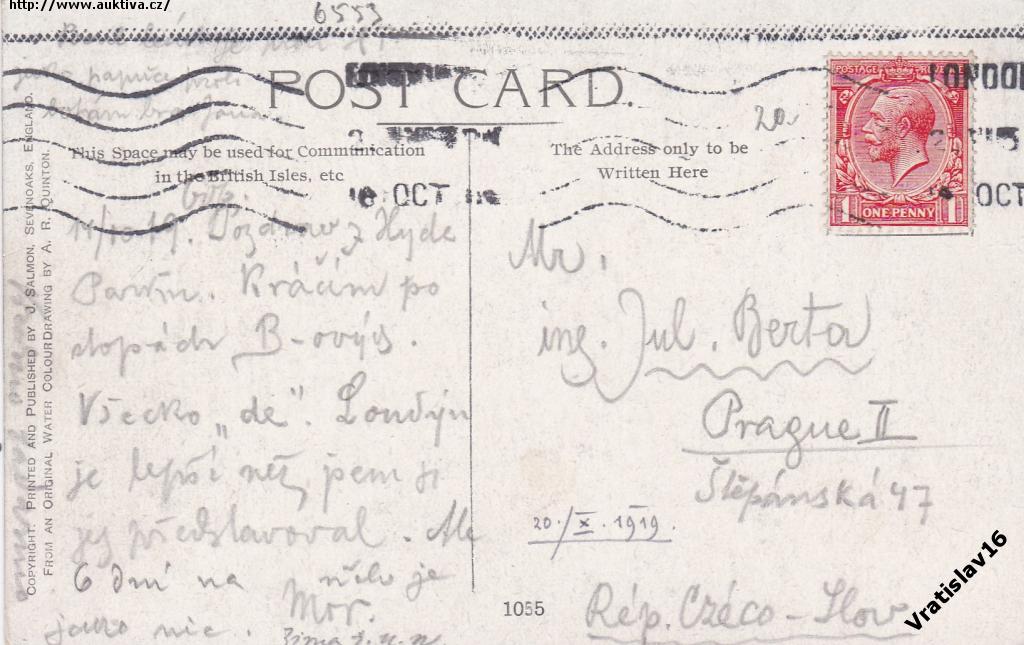 http://www.auktiva.cz/
6553
POST CARD.
20
This Space may be used for Communication
in the British Isles, etc
The Address only to be
Written Here
POSTAGE
1 ONE PENNY 1
LONDON
OCT
LONDON
OCT
COPYRIGHT. PRINTED AND PUBLISHED BY J. SALMON, SEVENOAKS, ENGLAND.
FROM AN ORIGINAL WATER COLOUR DRAWING BY A. R. QUINTON.
11/10 19. Pozdrav z Hyde
Parku. Kráčím po
stopách B-ových.
Všecko „de“. Londýn
je lepší než jsem si
jej představoval. Ale
6 dní na je
jako nic.
Mr.
ing. Jul. Berta
Prague II
Štěpánská 47
20./X. 1919.
1055
Rép. Czéco-Slov
Vratislav16